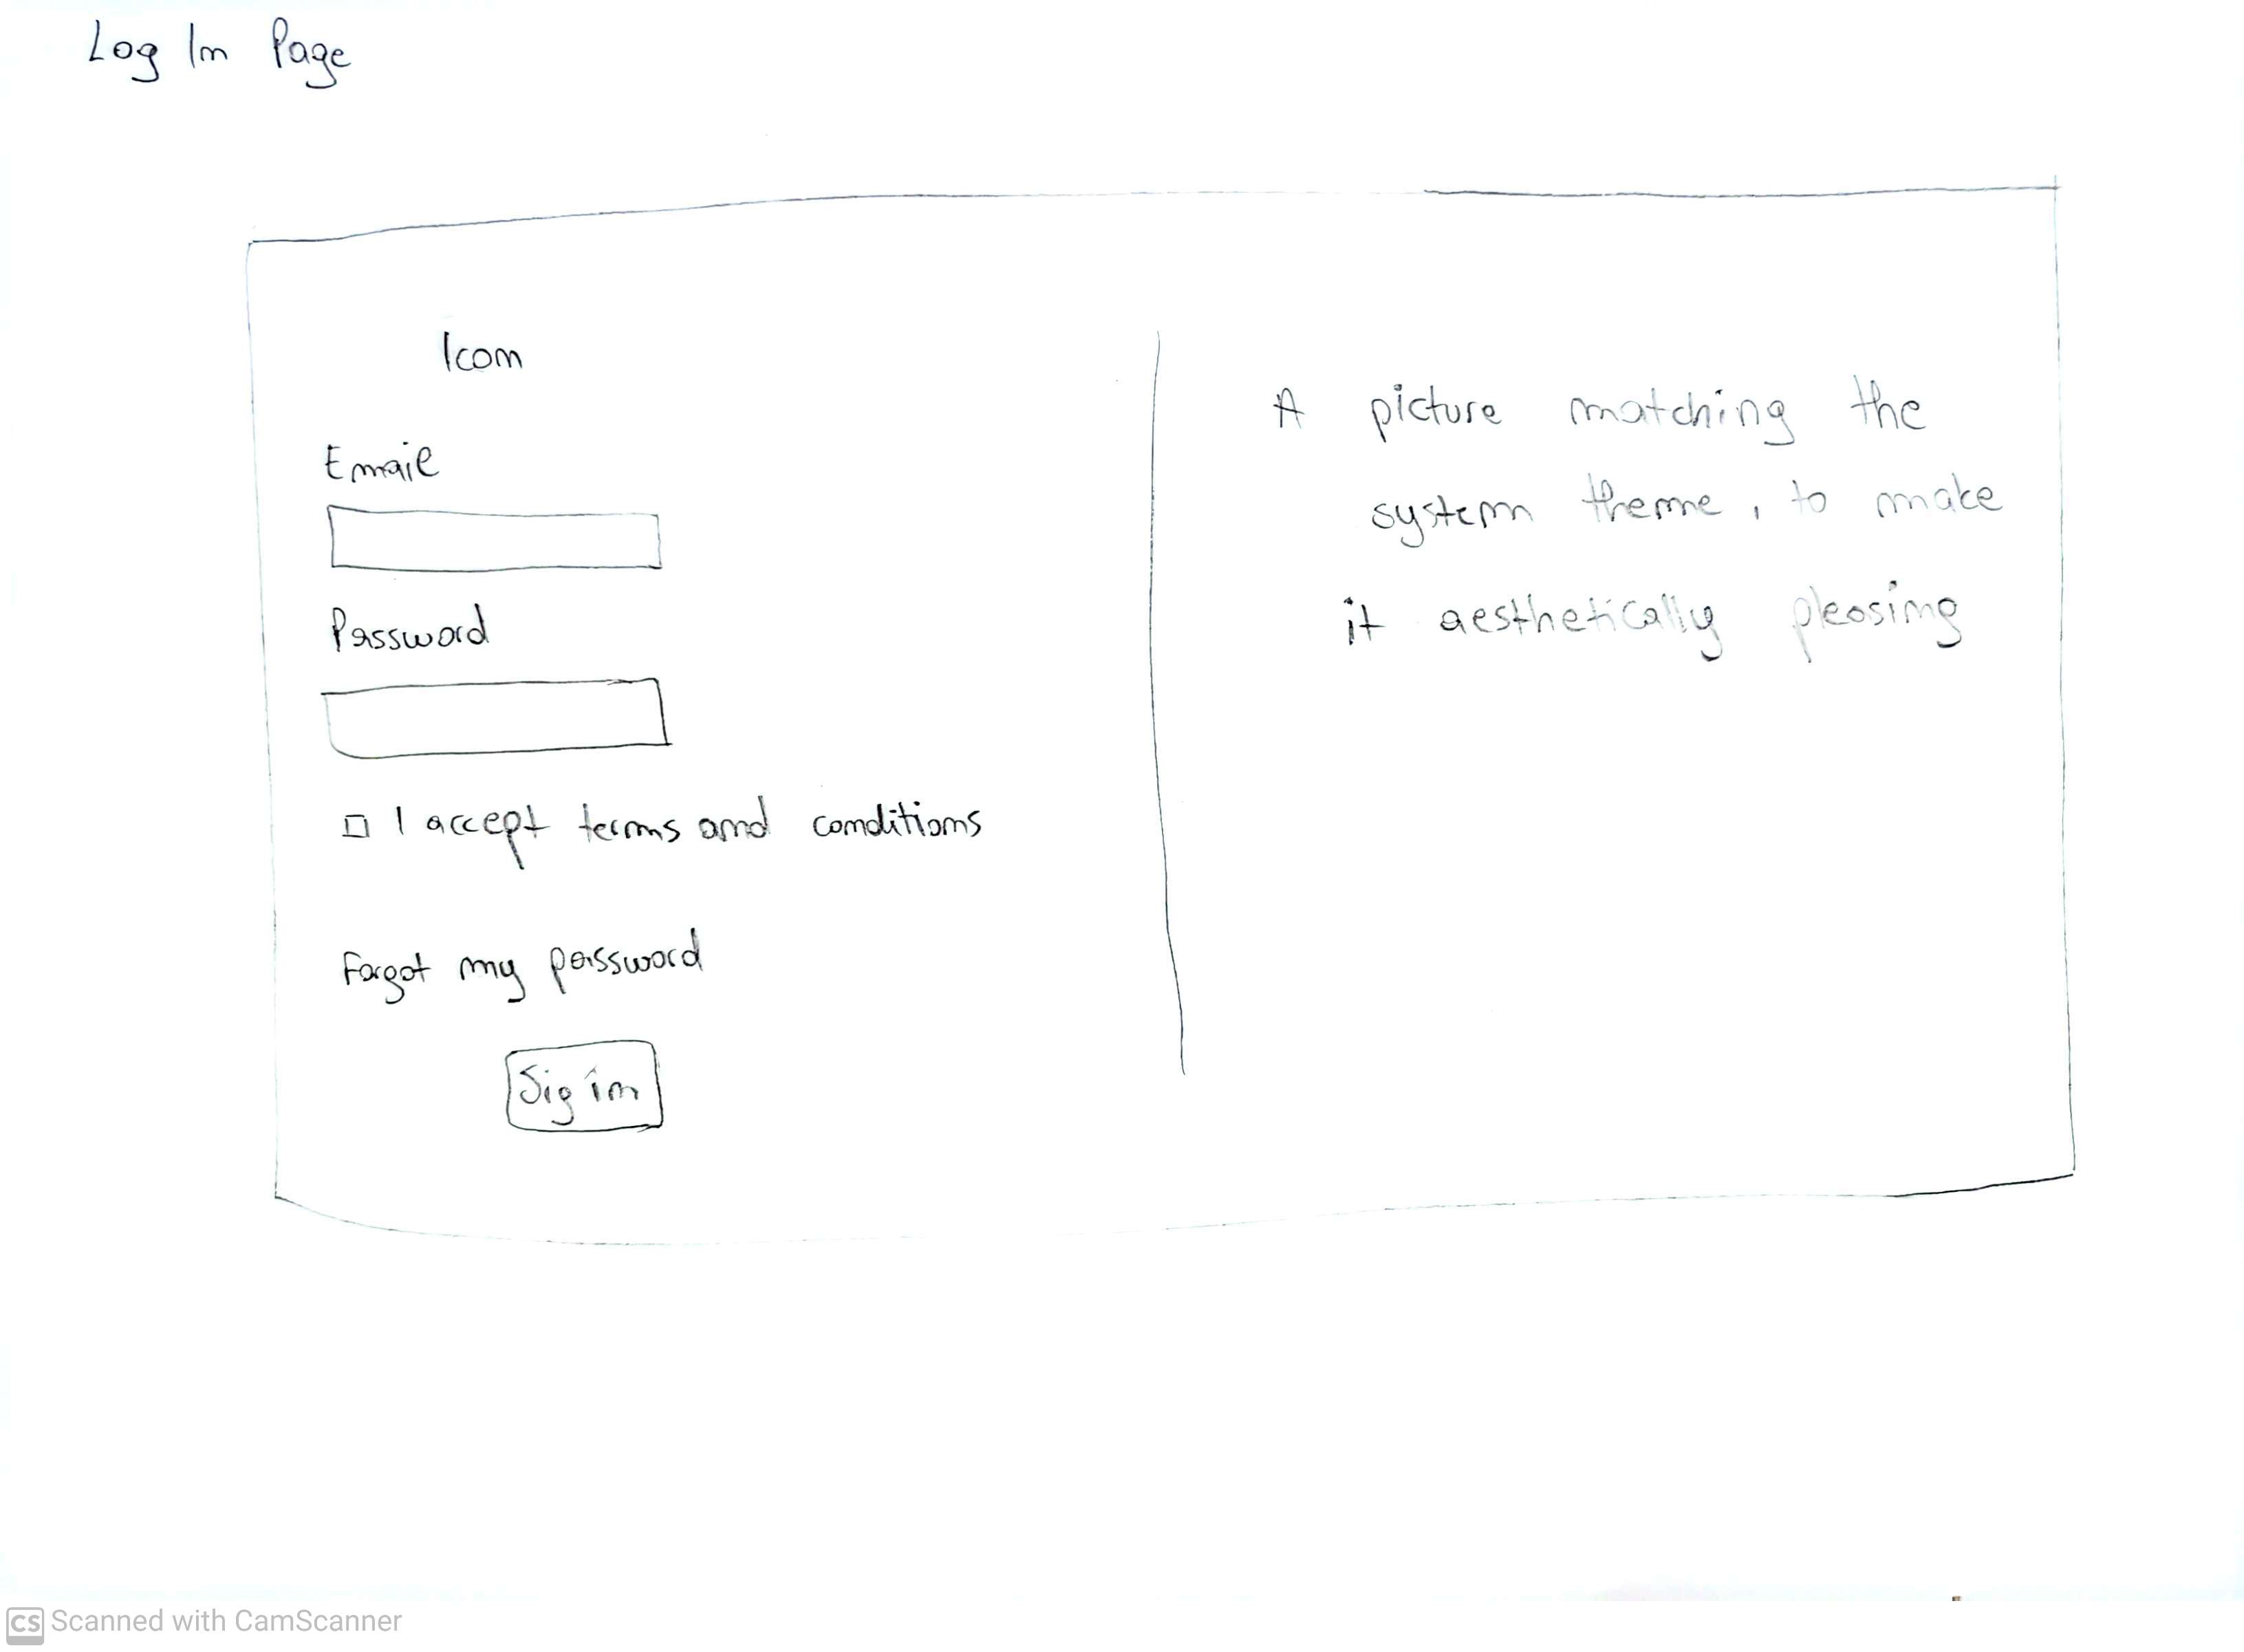 Log In Page
Icon
Email
Password
I accept terms and conditions
Forgot my password
Sig in
A picture matching the
system theme, to make
it aesthetically pleasing
CS Scanned with CamScanner